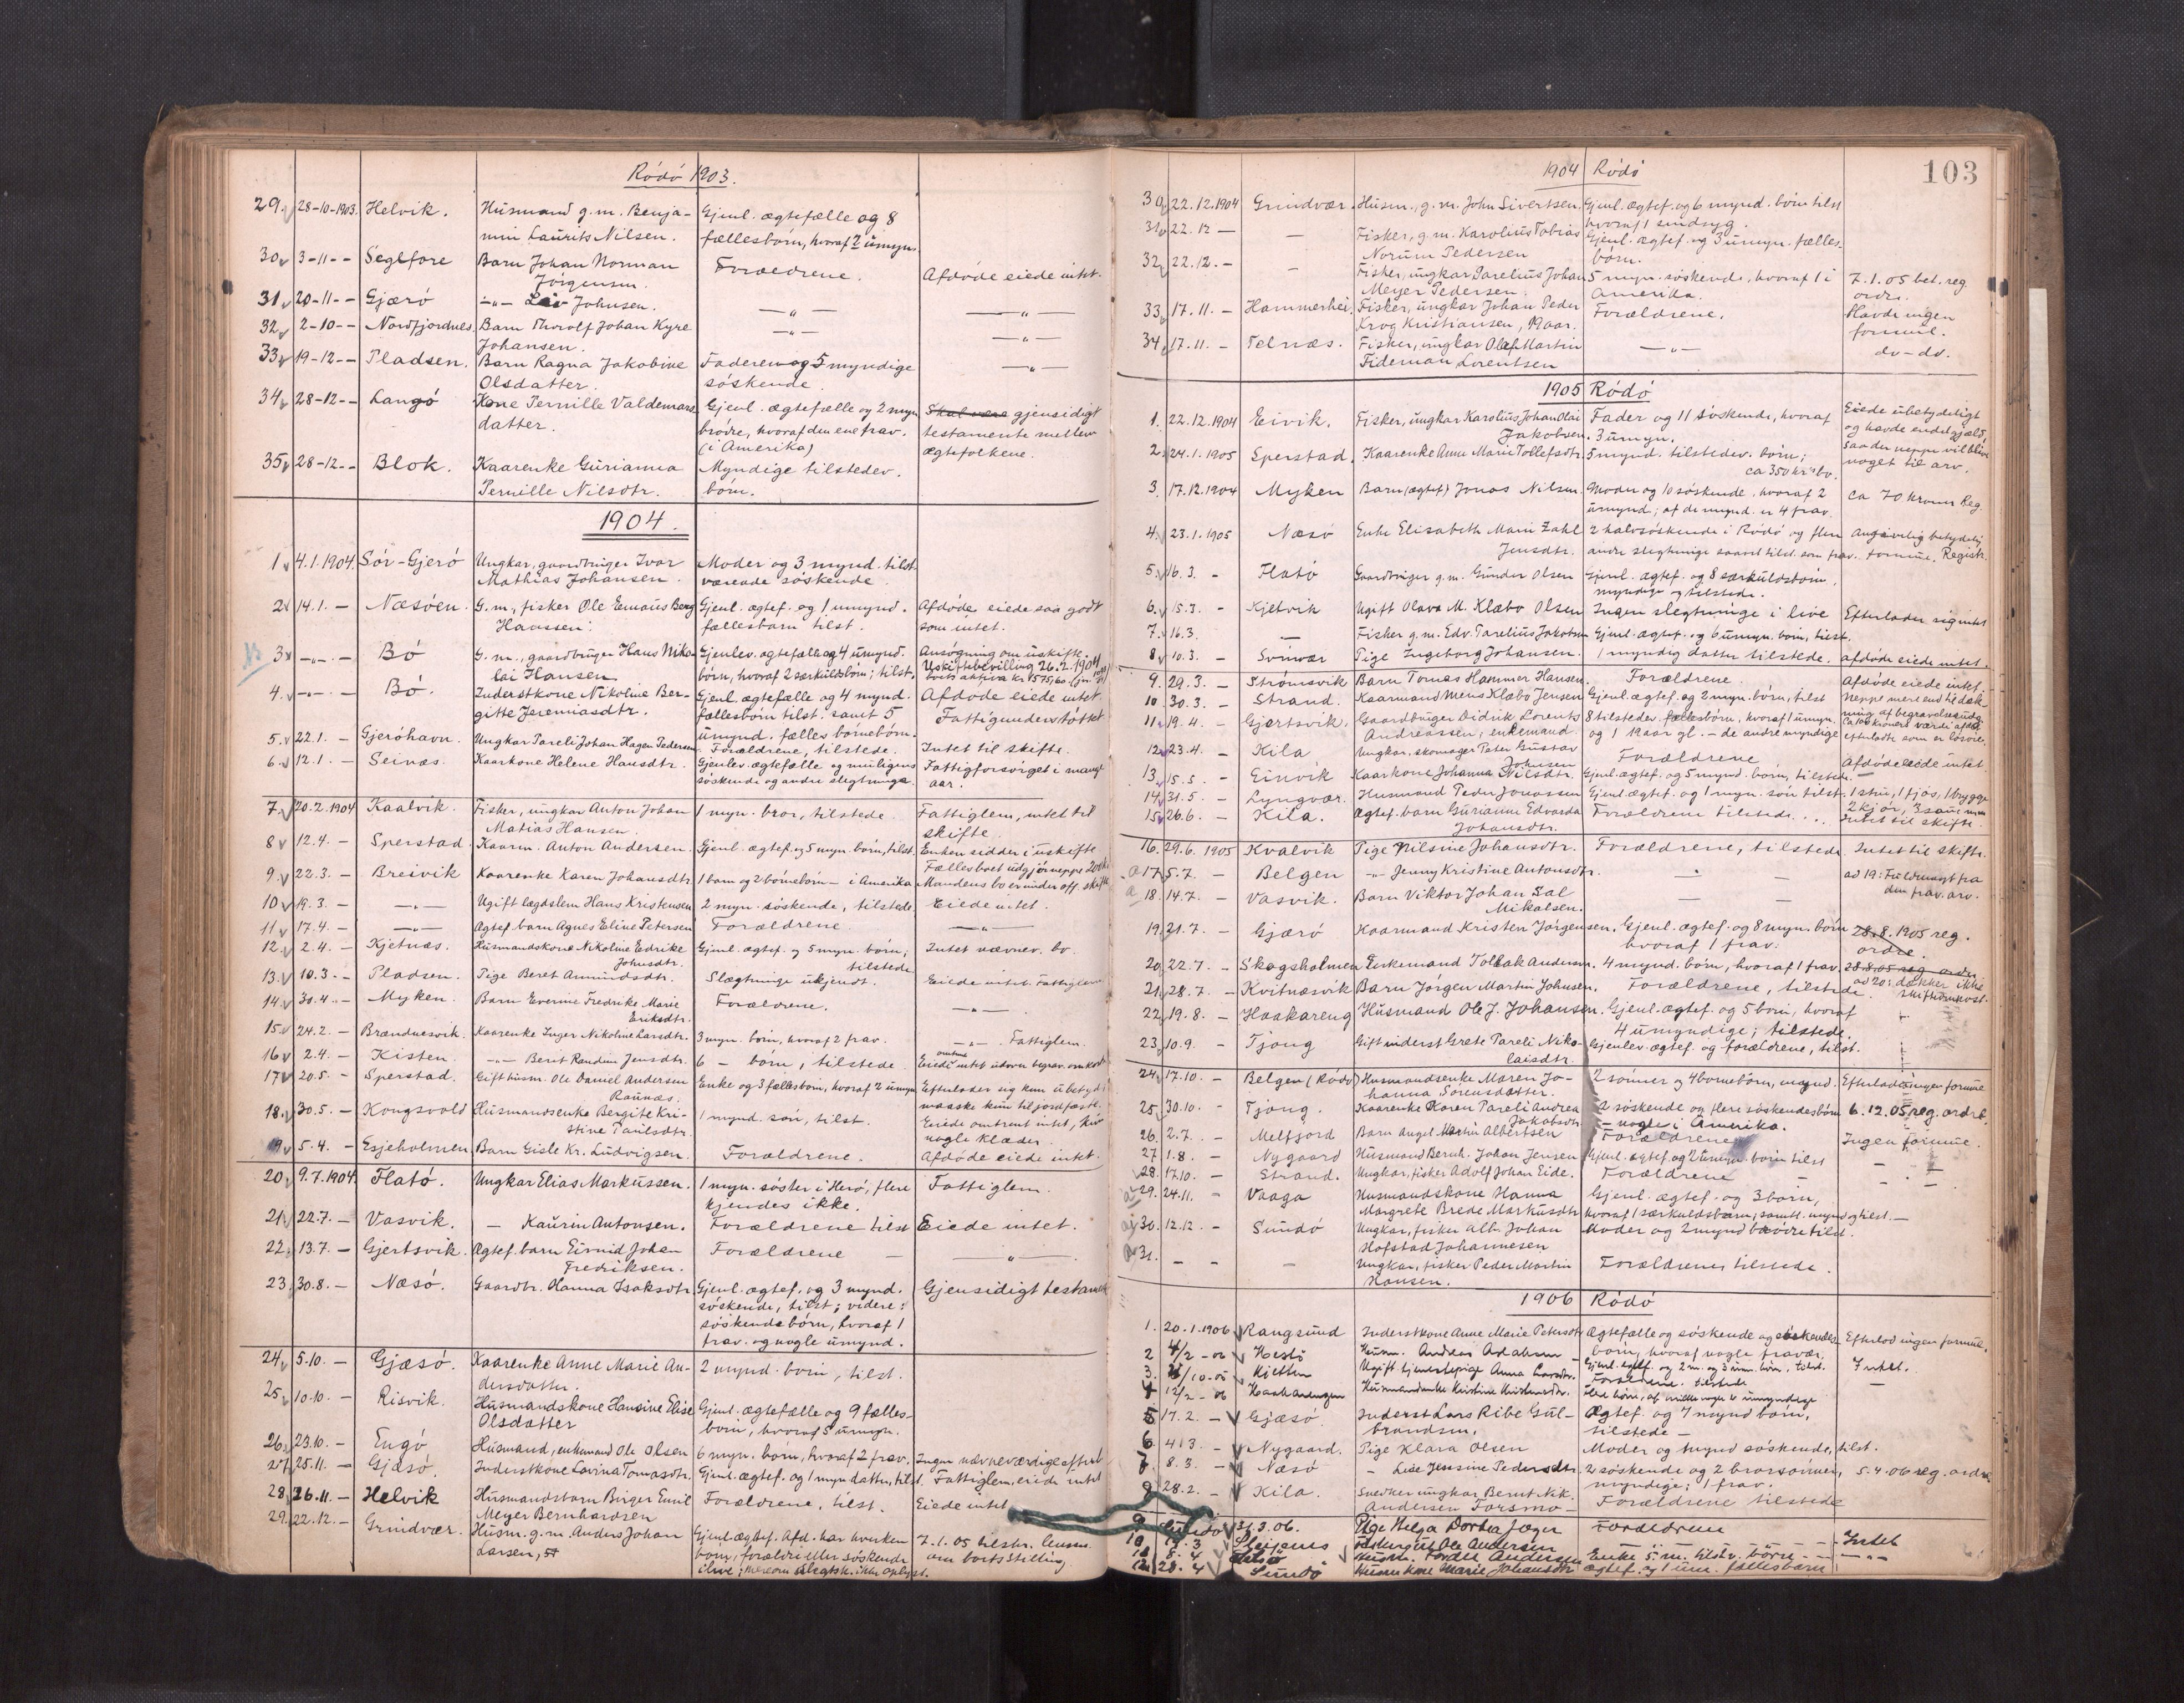 Rödö 1903.
29. 28-10-1903. Helvik. Husmand g.m. Benja- Gjenl. ægtefælle og 8
min Laurits Nilsen. fællesbörn, hvoraf 2 umyn.
30 3-11-- Seglfore Barn Johan Norman Forældrene. Afdöde eiede intet.
Jörgensen.
31 20-11-- Gjærö -"- Johnsen. -"- -"-
32 2-10-- Nordfjordnes. Barn Thorolf Johan Kyre -"- -"-
Johansen.
33 19-12-- Pladsen. Barn Ragna Jakobine Faderen og 5 myndige -"-
Olsdatter. söskende.
34 28-12-- Langö Kone Pernille Valdemars- Gjenl. ægtefælle og 2 myn. Skal være gjensidigt
datter. brödre, hvoraf den ene frav. testamente mellem
(i Amerika) ægtefolkene.
35 28-12-- Blok. Kaarenke Gurianna Myndige tilstedev.
Pernille Nilsdtr. börn.
1904.
1 4.1.1904. Sör-Gjerö Ungkar, gaardbruger Ivar Moder og 3 mynd. tilst.
Mathias Johansen. værende söskende.
2 14.1. - Næsöen. G.m., fisker Ole Emaus Berg Gjenl. ægtef. og 1 umynd. Afdöde eiede saa godt
Hanssen. fællesbarn tilst. som intet.
3 -"- - Bö G.m., gaardbruger Hans Niko- Gjenlev. ægtefælle og 4 umynd. Ansögning om uskifte.
lai Hansen börn, hvoraf 2 særkuldsbörn; tilst. Uskiftebevilling 26.2.1904
4. -"- - Bö. Inderstkone Nikoline Ber- Gjenl. ægtefælle og 4 mynd. Afdöde eiede intet
gitte Jeremiasdtr. fællesbörn tilst. samt 5 Fattigunderstöttet
umynd. fælles börnebörn.
5. 22.1. - Gjeröhavn. Ungkar Pareli Johan Hagen Pedersen Forældrene, tilstede. Intet til skifte.
6. 12.1. - Seinæs. Kaarkone Helene Hansdtr. Gjenlev. ægtefælle og muligens Fattigforsörget i mange
söskende og andre slegtninge. aar.
7. 20.2.1904 Kaalvik. Fisker, ungkar Anton Johan 1 myn. bror, tilstede. Fattiglem, intet til
Matias Hansen. skifte.
8 12.4. - Sperstad. Kaarm. Anton Andersen. Gjenl. ægtef. og 5 myn. börn, tilst. Enken sidder i uskifte
Fællesboet udgjör neppe 200 kr.
9. 22.3. - Breivik Kaarenke Karen Johansdtr. 1 barn og 2 börnebörn - i Amerika Mandens bo er under off. skifte
10 19.3. - -"- Ugift lægdslem Hans Kristensen 2 myn. söskende, tilstede. Eiede intet.
11 17.4. - -"- Ægtef. barn Agnes Eline Petersen Forældrene. -"-
12. 2.4. - Kjetnæs. Husmandskone Nikoline Edrike Gjenl. ægtef. og 5 myn. börn; Intet nævnev. bo.
Johnsdtr. tilstede
13. 10.3. - Pladsen. Pige Beret Amundsdtr. Slægtninge ukjendt. Eiede intet. Fattiglem
14. 30.4. - Myken. Barn Everine Fredrike Marie Forældrene. -"-
Eriksdtr.
15. 24.2. - Brændnesvik. Kaarenke Inger Nikoline Larsdtr. 3 myn. börn, hvoraf 2 frav. -"- Fattiglem.
16 2.4. - Kisten. -"- Berit Randine Jensdtr. 6 - börn, tilstede Eiede intet udover begrav. omkost
17 20.5. - Sperstad. Gift husm. Ole Daniel Andersen Enke og 3 fællesbörn, hvoraf 2 umyn Efterlader sig kun ubetyd.
Raunæs. maaske kun til jordfæst.
18. 30.5. - Kongsvold Husmandsenke Bergite Kri- 1 mynd. sön, tilst. Eiede omtrent intet, kun
stine Paulsdtr. nogle klæder.
19 5.4. - Esjeholmen. Barn Gisle Kr. Ludvigsen. Forældrene. Afdöde eiede intet.
20. 9.7.1904. Flatö. Ungkar Elias Markussen. 1 myn. söster i Herö, flere Fattiglem.
kjendes ikke.
21. 22.7. - Vasvik. - Kaurin Antonsen. Forældrene tilst Eiede intet.
22. 13.7. - Gjertsvik. Ægtef. barn Eivind Johan Forældrene - -"-
Fredriksen.
23. 30.8. - Næsö. Gaardbr. Hanna Isaksdtr. Gjenl. ægtef. og 3 mynd. Gjensidigt testament
söskende, tilst; videre:
söskendebörn, hvoraf 1
frav. og nogle umynd.
24. 5.10. - Gjæsö. Kaarenke Anne Marie An- 2 mynd. börn, tilst.
dersdatter.
25. 10.10. - Risvik. Husmandskone Hansine Elise Gjenl. ægtefælle og 9 fælles-
Olsdatter börn, hvoraf 5 umyn.
26. 23.10. - Engö Husmand, enkemand Ole Olsen 6 myn. börn, hvoraf 2 frav. Ingen nævneværdige
27. 25.11. - Gjæsö. Inderstkone Lovina Tomasdtr. Gjenl. ægtef. og 1 myn datter, tilst. Fattiglem, eiede intet
28. 26.11. - Helvik Husmandsbarn Birger Emil Forældrene, tilst. Eiede intet
Meyer Bernhardsen
29. 22.12. - Grindvær. Husm. g.m. Anders Johan Gjenl. ægtef. Afd. har hverken 7.1.05 tilskr.
Larsen, börn, forældre eller söskende om bortsstilling
ilive;
103
1904 Rödö
30. 22.12.1904 Grindvær. Husm., g.m. John Sivertsen. Gjenl. ægtef. og 6 mynd. börn tilst
hvoraf 1 sindsyg.
31 22.12 - - Fisker, g.m. Karolius Tobias Gjenl. ægtef. og 3 umyn. fælles-
Norum Pedersen börn.
32. 22.12. - - Fisker, ungkar Parelius Johan 5 myn. söskende, hvoraf 1 i 7.1.05 bet. reg
Meyer Pedersen. Amerika. ordre.
33. 17.11. - Hammerhei. Fisker, ungkar Johan Peder Forældrene. Havde ingen
Krog Kristiansen, 19 aar. formue.
34. 17.11. - Telnæs. Fisker, ungkar Olaf Martin -"- do-do.
Tideman Lorentsen
1905 Rödö
1. 22.12.1904 Eivik. Fisker, ungkar Karolius Johan Olai Fader og 11 söskende, hvoraf Eiede ubetydeligt
Jakobsen. 3 umyn. og havde endel gjæld,
2. 24.1.1905 Sperstad. Kaarenke Anne Marie Tollefsdtr. 5 mynd. tilstedev. börn; saa der neppe vil blive
ca 350 kr's bo. noget til arv.
3. 17.12.1904 Myken Barn (ægtef) Jonas Nilsen. Moder og 10 söskende, hvoraf 2 Ca 70 kroner Reg
umynd; af de mynd. er 4 frav.
4. 23.1.1905 Næsö Enke Elisabeth Marie Zahl 2 halvsöskende i Rödö og flere Angivelig betydelig
Jensdtr. andre slegtninge saavel tilst. som frav. formue. Registr.
5. 16.3. - Flatö Gaardbruger g.m. Gunder Olsen Gjenl. ægtef. og 8 særkuldsbörn,
myndige og tilstede.
6. 15.3. - Kjelvik Ugift Olava M. Klæbo Olsen Ingen slegtninge i live Efterlader sig intet
7. 16.3. - Fisker g.m. Edv. Parelius Jakobsen Gjenl. ægtef. og 6 umyn. börn, tilst.
8 10.3. - Svinvær Pige Ingeborg Johansen. 1 myndig datter tilstede. Afdöde eiede intet.
9. 29.3. - Strömsvik Barn Tomas Hammer Hansen. Forældrene. Afdöde eiede intet.
10. 30.3. - Strand. Kaarmand Mons Klæbo Jensen Gjenl. ægtef. og 2 myn. börn, tilst Neppe mere end til dæk-
ning af begravelsesudg.
11. 19.4. - Gjertsvik. Gaardbruger Didrik Lorents 8 tilstedev. fællesbörn, hvoraf 1 umyn. Ca 100 kroners værdi
Andreassen; enkemand og 19 aar gl. - de andre myndige efterladte som er lösöre.
12. 23.4. - Kila Ungkar, skomager Peter Gustav Forældrene Afdöde eiede intet
Johnsen
13. 15.5. - Einvik Kaarkone Johanna Nilsdtr. Gjenl. ægtef. og 5 mynd. börn, tilstede. -
14 31.5. - Lyngvær. Husmand Peder Jonassen Gjenl. ægtef. og 1 myn. sön tilst. 1 stue, 1 fjös, 1 brygge
2 kjör, 3 sauer m.m.
15. 26.6. - Kila. Ægtef. barn Gurianne Edvarda Forældrene tilstede ... Intet til skifte.
Johansdtr.
16. 29.6.1905 Kvalvik Pige Nilsine Johansdtr. Forældrene, tilstede. Intet til skifte.
17 5.7. - Belgen -"- Jenny Kristine Antonsdtr. -"- ad 19: Fuldmagt fra
18. 14.7. - Vasvik. Barn Viktor Johan Dal - - den frav. arv.
Mikalsen.
19. 21.7. - Gjærö Kaarmand Kristen Jörgensen. Gjenl. ægtef. og 8 myn. börn 28.8.1905 reg.
hvoraf 1 frav. ordre.
20. 22.7. - Skogsholmen Enkemand Tollak Andersen. 4 mynd. börn, hvoraf 1 frav. 28.8.05 reg. ordre
21. 28.7. - Kvitnæsvik Barn Jörgen Martin Johnsen. Forældrene, tilstede. ad 20: dækker ikke
skifteomkost.
22. 19.8. - Haakareng Husmand Ole J. Johansen. Gjenl. ægtef. og 5 börn, hvoraf
4 umyndige; tilstede.
23. 10.9. - Tjong Gift inderst Grete Pareli Niko- Gjenlev. ægtef. og forældrene, tilst.
laisdtr.
24. 17.10. - Belgen (Rödö) Husmandsenke Maren Jo- 2 sönner og 4 börnebörn, mynd. Efterlader ingen formue
hanna Sörensdatter.
25. 30.10. - Tjong. Kaarenke Karen Pareli Andrea 2 söskende og flere söskendebörn 6.12.05 reg. ordre
Jakobsdtr. - nogle i Amerika.
26. 2.7. - Melfjord Barn Angel Martin Albertsen Forældrene Ingen formue.
27 1.8. - Nygaard Husmand Bernh. Johan Jensen Gjenl. ægtef. og 2 umyn. börn tilst -
28. 17.10. - Strand. Ungkar, fisker Adolf Johan Eide. Forældrene -
29. 24.11. - Vaaga Husmandskone Hanna Gjenl. ægtef. og 3 börn,
Margrete Brede Markusdtr hvoraf 1 særkuldsbarn; samtl. mynd og tilst. -
30. 12.12. - Sundö Ungkar, fisker Alb. Johan Moder og 2 mynd brödre tilst.
Hofstad Johannesen
31. - - - Ungkar, fisker Peder Martin Forældrene tilstede.
Hansen.
1906 Rödö
1. 20.1.1906 Rangsund Inderstkone Anne Marie Petersdtr Ægtefælle og söskende og söskende- Efterlod ingen formue.
börn, hvoraf nogle fravær.
2 4/2-06 Hestö Husm. Andreas Gjenl. ægtf. og 2 m. og 3 um. börn, tilst. Intet.
3. /10-05 Kjetten Ugift tjenestepige Anna Larsdtr. Forældrene tilstede -
4 12/2-06 Haakarengen Husmandsenke Kristine Kristensdtr.
5 17.2. - Gjæsö. Inderst Lars Ribe Gul- Ægtef. og 7 mynd börn,
brandsen. tilstede -
6. 4.3. - Nygaard. Pige Klara Olsen Moder og mynd söskende, tilst.
7. 8.3. - Næsö - Lise Jensine Pedersdtr. 2 söskende og 2 brorsönner, 5.4.06 reg. ordre
myndige; 1 frav.
28.2. - Kila. Snedker ungkar Bernt Nik. Forældrene tilstede
Andersen Forsmo -
9 Sundö 31.3.06. Pige Helga Dorthea Jæger Forældrene
10 Ole Andersen Intet
11 8.4 Husm. Andersen Enke 5 m. tilstv. börn - -"-
12 28.4 Sundö Husm.kone Marie Johansdtr Ægtef. og 1 um. fællesbarn